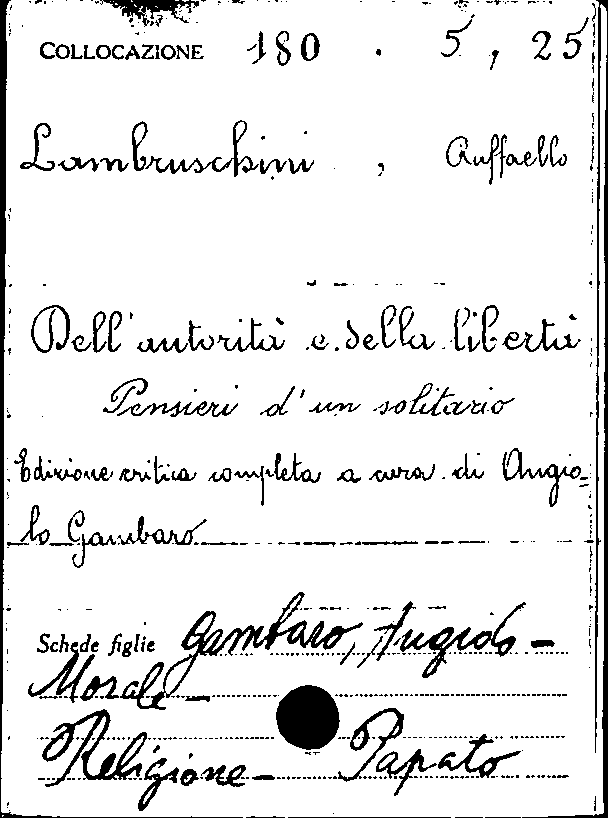 COLLOCAZIONE 180 . 5, 25
Lambruschini, Raffaello
Dell'autorità e della libertà
Pensieri d'un solitario
Edizione critica completa a cura di Angio-
lo Gambaro
Schede figlie Gambaro, Angiolo -
Morale -
Religione - Papato